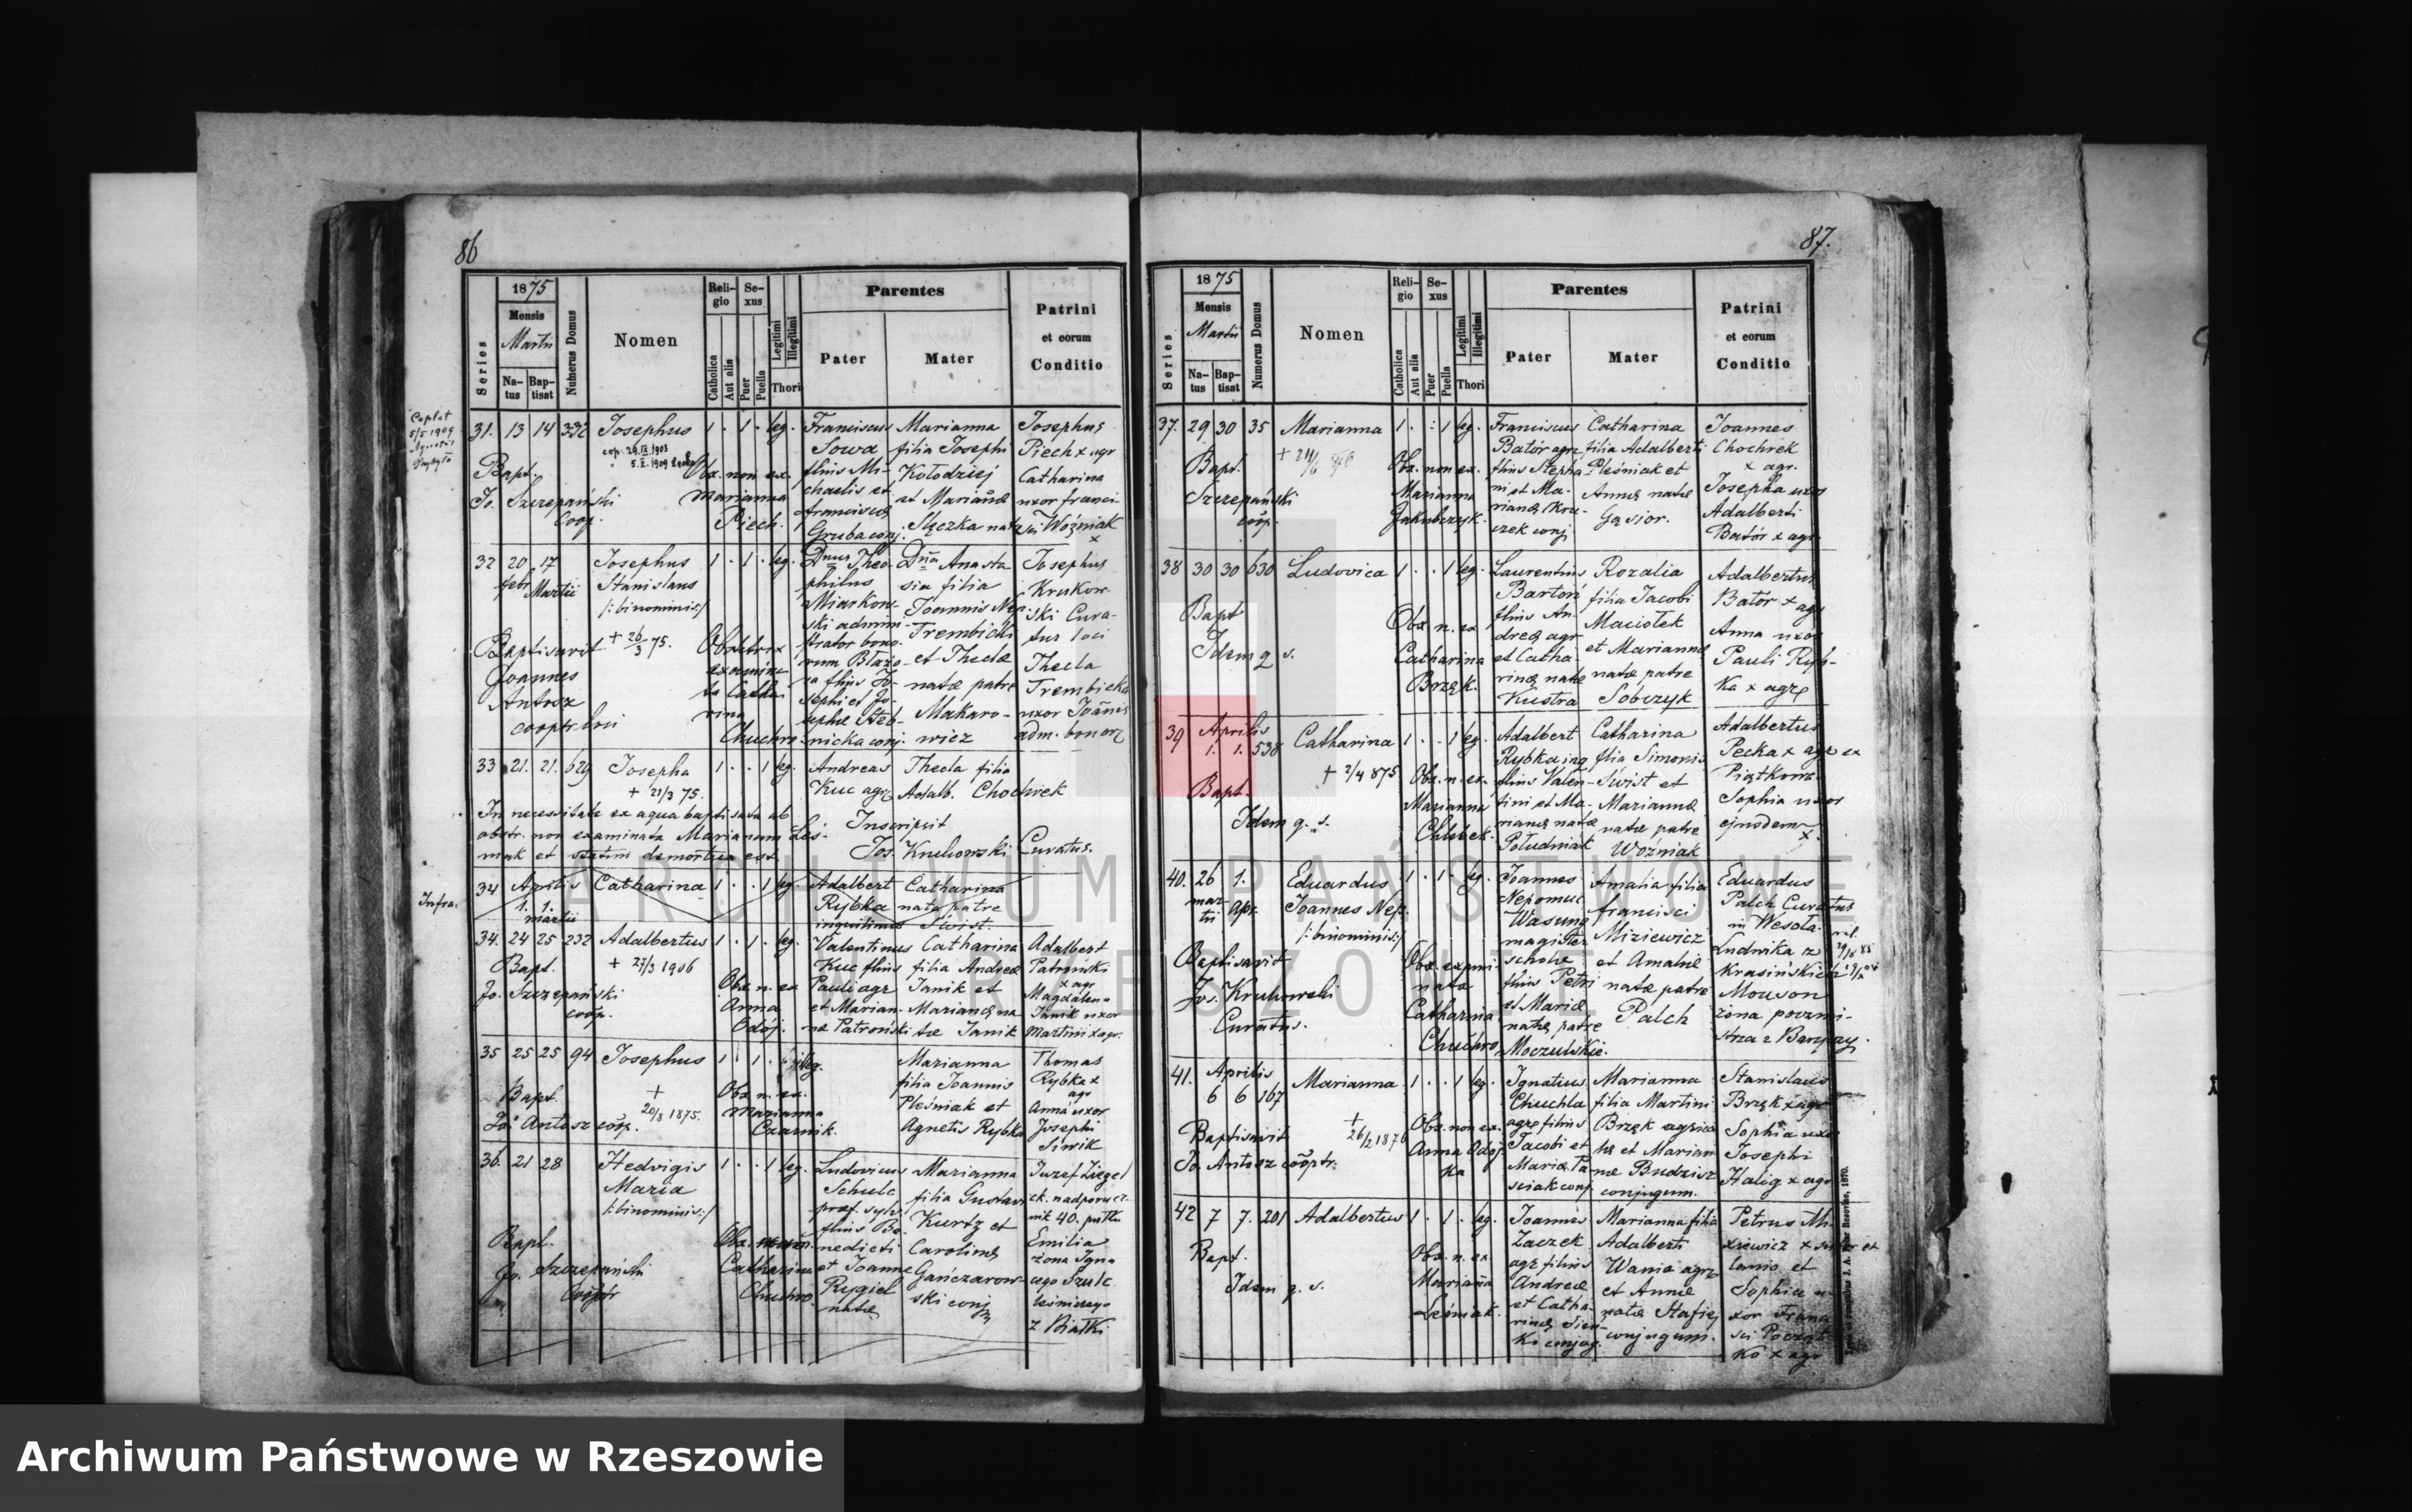 86
1875
Mensis
Martii
Series
Natus
Baptisat
Numerus Domus
Nomen
Religio
Catholica
Aut alia
Sexus
Puer
Puella
Legitimi
Illegitimi
Thori
Parentes
Pater
Mater
Patrini
et eorum
Conditio
31. 13 14 332 Josephus 1 . 1 . leg. Franciscus Marianna Josephus
Sowa filia Josephi Piech x agr
Bapt. Obs. non ex. filius Mi- Kołodziej Catharina
Jo. Szczepański Marianna chaelis et et Marianæ uxor Franci-
coop. Piech. Gruba conj. Slęczka natæ sci Woźniak
x
32 20 17 Josephus 1 . 1 . leg. Dnus Theo- Dna Anasta Josephus
febr Martii Stanislaus philus sia filia Krukow-
/:binominis:/ Miarkow- Joannis Nep. ski Cura-
ski admini- Trembicki tus loci
Baptisavit + 26/3 75. Obstetrix strator bono- et Theclæ Thecla
Joannes examina- rum Błażo- natæ patre Trembicka
Antosz ta Catha- Makaro- uxor Joannis
cooptr loci rina wicz adm. bonor
Chuchro nicka conj.
33 21. 21. 629 Josepha 1 . . 1 leg. Andreas Thecla filia
+ 21/3 75. Kuc agr Adalb. Chochrek
In necessitate ex aqua baptisata ab Inscripsit
obstr. non examinata Marianna Leś- Jos. Krukowski Curatus.
niak et statim demortua est.
Infra.
34 Aprilis Catharina 1 . . 1 leg. Adalbert Catharina
1. 1. Rybka nata patre
Martii inquilinus Świst.
34. 24 25 232 Adalbertus 1 . 1 . leg. Valentinus Catharina Adalbert
Bapt. + 27/3 1906 Kuc filius filia Andreæ Patroński
Jo. Szczepański Obs. n. ex Pauli agr Janik et x agr
coop. Anna et Marian- Marianæ na Magdalena
Odój. næ Patroński tæ Janik Janik uxor
Martini x agr.
35 25 25 94 Josephus 1 . 1 . illeg. Marianna Thomas
filia Joannis Rybka x
Bapt. + Obs. n. ex. Pleśniak et agr
Jo. Antosz coop. 20/8 1875. Marianna Agnetis Rybka Anna uxor
Czarnik. Josephi
Siwik
36. 21 28 Hedvigis 1 . . 1 leg. Ludovicus Marianna Juzef Ziegel
Maria Schulc filia Gustavi ck. nadporucz
/:binominis:/ præf. sylv. Kurtz et nik 40. pułku
filius Be- Carolinæ Emilia
Bapt. nedicti Gańczarow- żona Igna
Jo. Szczepański Catharina et Joanne ski conj cego Szulc
cooptr Chuchro Rygiel leśniczego
natæ z Białki
87.
1875
Mensis
Martii
Series
Natus
Baptisat
Numerus Domus
Nomen
Religio
Catholica
Aut alia
Sexus
Puer
Puella
Legitimi
Illegitimi
Thori
Parentes
Pater
Mater
Patrini
et eorum
Conditio
37. 29 30 35 Marianna 1 . . 1 leg. Franciscus Catharina Joannes
Batór agr filia Adalberti Chochrek
Bapt. Obs. non ex. filius Stepha- Pleśniak et x agr.
Szczepański Marianna ni et Ma- Annæ natæ Josepha uxor
coop. Jakubczyk. rianæ Kru- Gąsior. Adalberti
czek conj. Batór x agr
38 30 30 630 Ludovica 1 . . 1 leg. Laurentius Rozalia Adalbertus
Bartoń filia Jacobi Bator x agr
Bapt Obs. n. ex filius An- Maciołek Anna uxor
Idem q. s. Catharina dreæ agr et Marianæ Pauli Ryb-
Brzęk. et Catha- natæ patre ka x agr
rinæ natæ Sobczyk
Kustra
39 Aprilis Catharina 1 . . 1 leg. Adalbert Catharina Adalbertus
1. 1. 538 Rybka inq filia Simonis Pecka x agr ex
+ 2/4 875 Obs. n. ex. filius Valen- Świst et Piątkowa
Bapt. Marianna tini et Ma- Marianæ Sophia uxor
Idem q. s. Chlebek. rianæ natæ natæ patre ejusdem
Południak Woźniak x
40. 26 1. Eduardus 1 . 1 . leg. Joannes Amalia filia Eduardus
mar- Apr. Joannes Nep. Nepomuc Francisci Palch Curatus
tii /:binominis:/ Wasung Miziewicz in Wesoła
Baptisavit magister et Amaliæ Ludwika z
Jos. Krukowski Obs. exami- scholæ natæ patre Krasińskich
Curatus. nata filius Petri Palch Mouson
Catharina et Mariæ żona poczmi-
Chuchro natæ patre strza z Baryczy.
Moczulskie.
41. Aprilis Marianna 1 . . 1 leg. Ignatius Marianna Stanislaus
6 6 167 Chuchla filia Martini Brzęk x agr
Baptisavit + 26/2 1876 Obs. non ex. agr filius Brzęk agricæ Sophia uxor
Jo. Antosz cooptr. Anna Odój Jacobi et et Marian Josephi
ka Mariæ Pa- næ Budzisz Halig x agr
sciak conj conjugum.
42 7 7. 201 Adalbertus 1 . 1 . leg. Joannes Marianna filia Petrus Mi-
Zaczek Adalberti
Bapt. Obs. n. ex agr filius Wania agr
Idem q. s. Marianna Andreæ et Annæ Sophia u-
Leśniak. et Catha- natæ Stafiej xor Franci
rinæ Sien- conjugum. sci Począt
ko conjug. ko x agr
ARCHIWUM PAŃSTWOWE
W RZESZOWIE
Archiwum Państwowe w Rzeszowie